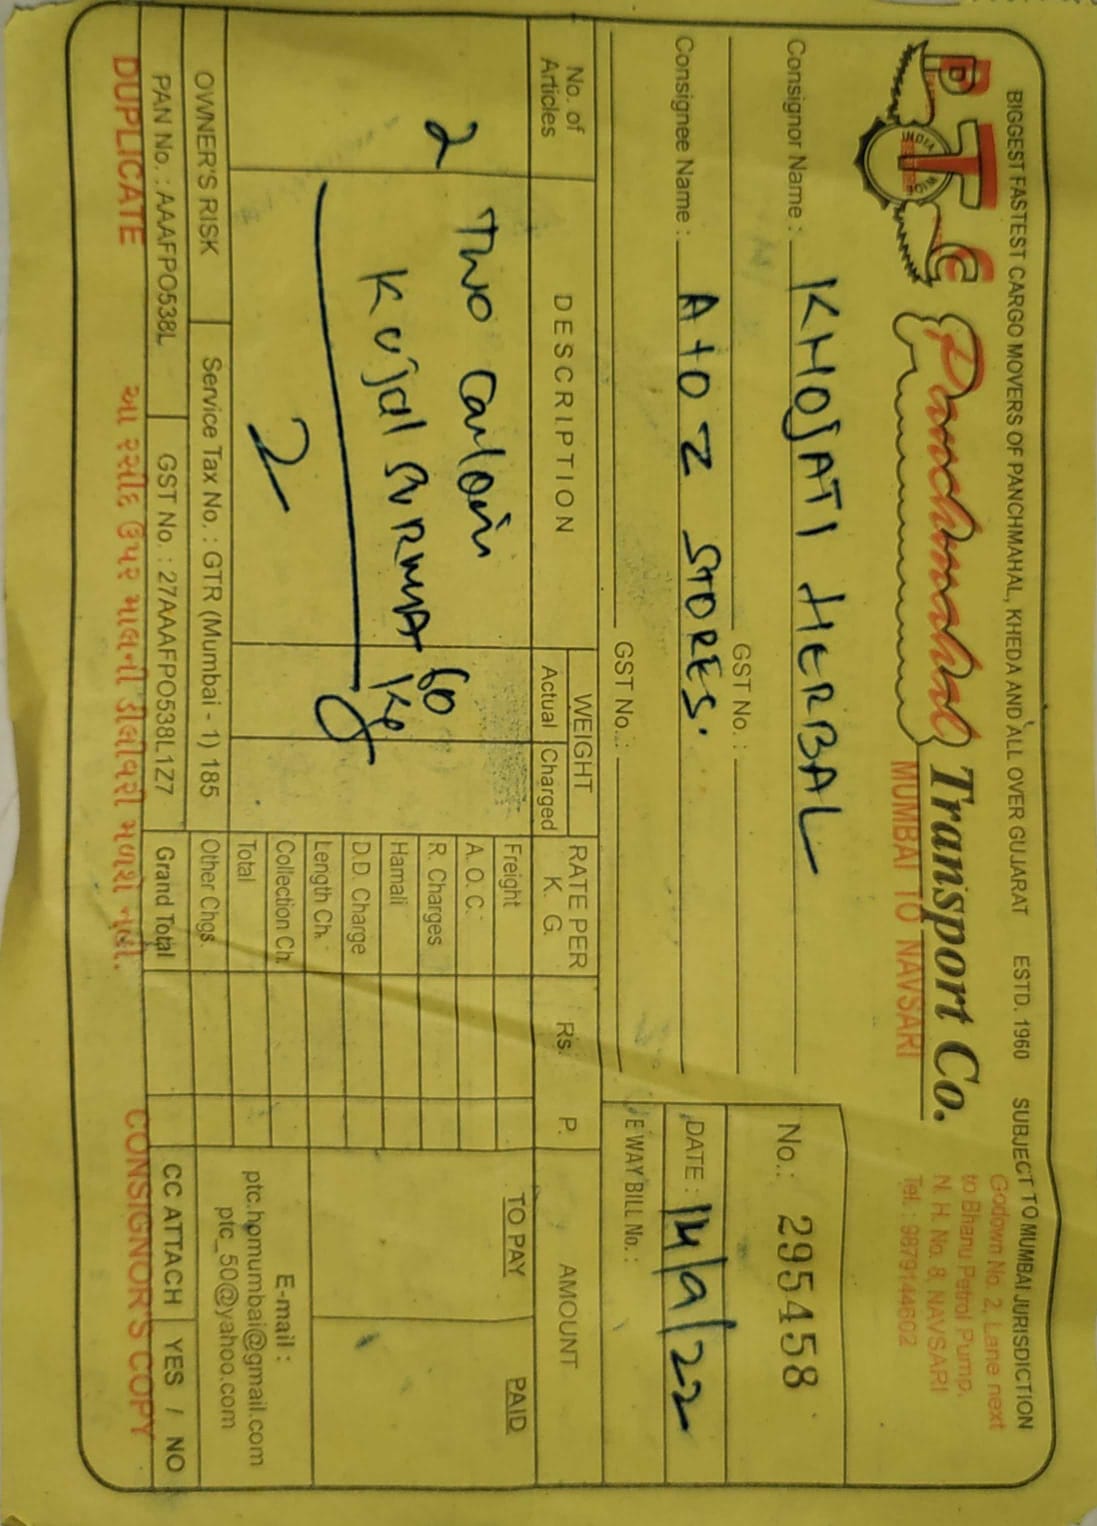 BIGGEST FASTEST CARGO MOVERS OF PANCHMAHAL, KHEDA AND ALL OVER GUJARAT ESTD. 1960 SUBJECT TO MUMBAI JURISDICTION
P T C Panchmahal Transport Co.
MUMBAI TO NAVSARI
Godown No. 2, Lane next
to Bhanu Petrol Pump,
N. H. No. 8, NAVSARI
Tel. : 9879144602
Consignor Name : KHOJATI HERBAL
GST No. :
No.: 295458
Consignee Name : A to Z STORES.
GST No. :
DATE : 14/9/22
E WAY BILL No. :
No. of Articles
DESCRIPTION
WEIGHT
Actual Charged
RATE PER K. G.
Rs. P.
AMOUNT
TO PAY PAID
2 Two Carton
Kajal SURMA
60 Kg
2
Freight
A. O. C.
R. Charges
Hamali
D.D. Charge
Length Ch.
Collection Ch.
Total
Other Chgs.
Grand Total
E-mail :
ptc.homumbai@gmail.com
ptc_50@yahoo.com
OWNER'S RISK Service Tax No. : GTR (Mumbai - 1) 185
PAN No. : AAAFPO538L GST No. : 27AAAFPO538L1Z7
CC ATTACH YES / NO
DUPLICATE આ રસીદ ઉપર માલની ડીલીવરી મળશે નહી. CONSIGNOR'S COPY